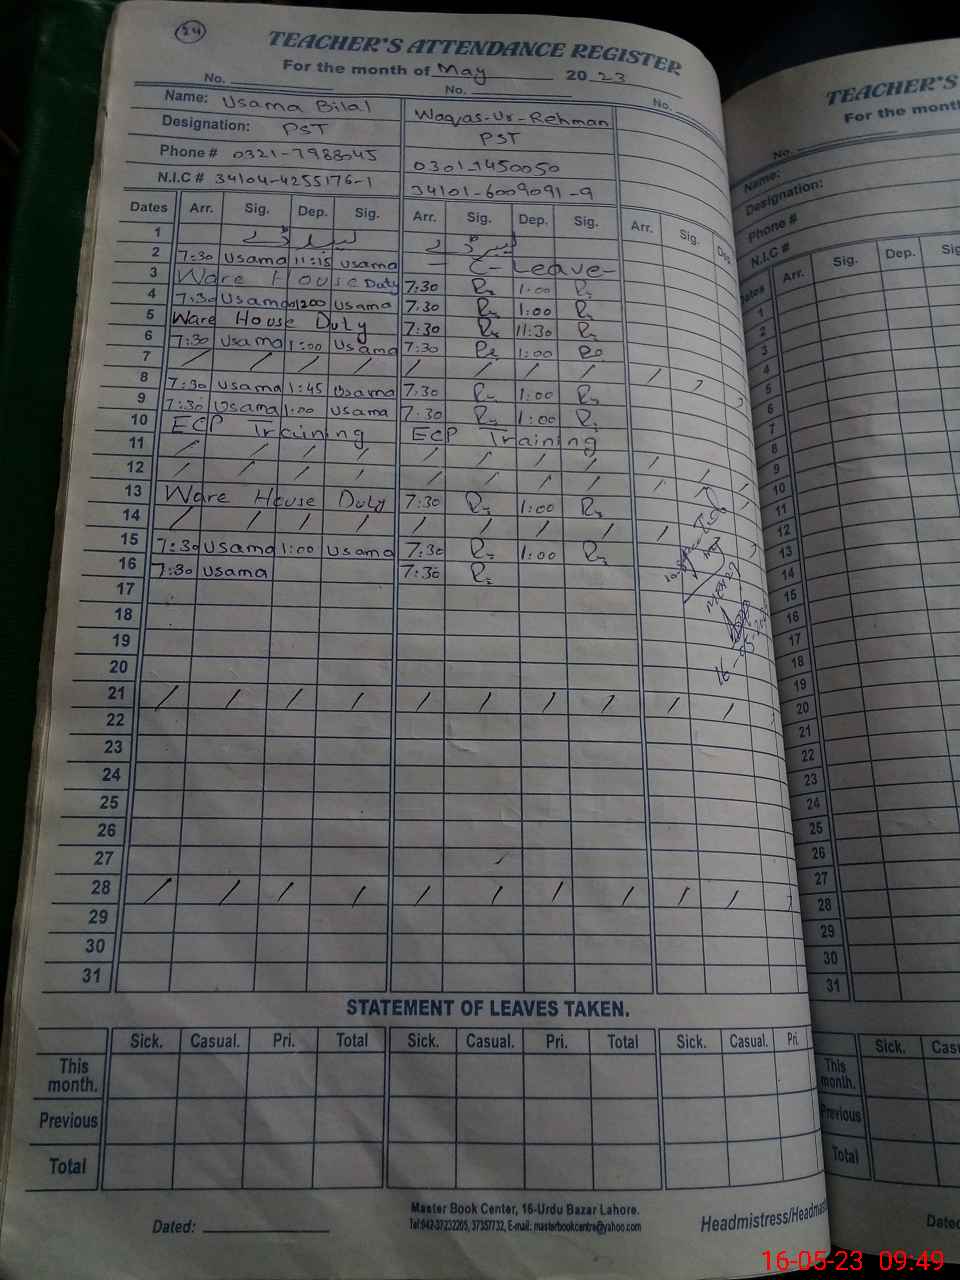 24
TEACHER'S ATTENDANCE REGISTER
For the month of May 20 23
No. No. No.
Name: Usama Bilal Waqas-Ur-Rehman
Designation: PST PST
Phone # 0321-7988045 0301-7450050
N.I.C # 34104-4255176-1 34101-6009091-9
Dates Arr. Sig. Dep. Sig. Arr. Sig. Dep. Sig. Arr. Sig. Dep
1
2 7:30 Usama 11:15 Usama - C- Leave-
3 Ware House Duty 7:30 1:00
4 7:30 Usama 1200 Usama 7:30 1:00
5 Ware House Duty 7:30 11:30
6 7:30 Usama 1:00 Usama 7:30 1:00
7 / / / / / / / / /
8 7:30 Usama 1:45 Usama 7:30 1:00
9 7:30 Usama 1:00 Usama 7:30 1:00
10 ECP Training ECP Training
11 / / / / / / / / /
12 / / / / / / / / /
13 Ware House Duty 7:30 1:00
14 / / / / / / / / /
15 7:30 Usama 1:00 Usama 7:30 1:00
16 7:30 Usama 7:30
17
18
19
20
21 / / / / / / / / / /
22
23
24
25
26
27
28 / / / / / / / / / /
29
30
31
STATEMENT OF LEAVES TAKEN.
Sick. Casual. Pri. Total Sick. Casual. Pri. Total Sick. Casual. Pri.
This month.
Previous
Total
Master Book Center, 16-Urdu Bazar Lahore.
Tel:042-37232205, 37357732, E-mail: masterbookcentre@yahoo.com
Dated: Headmistress/Headmas
TEACHER'S
For the month
No.
Name:
Designation:
Phone #
N.I.C #
Dates Arr. Sig. Dep. Sig
1
2
3
4
5
6
7
8
9
10
11
12
13
14
15
16
17
18
19
20
21
22
23
24
25
26
27
28
29
30
31
Sick. Cas
This month.
Previous
Total
Dated
16-05-23 09:49